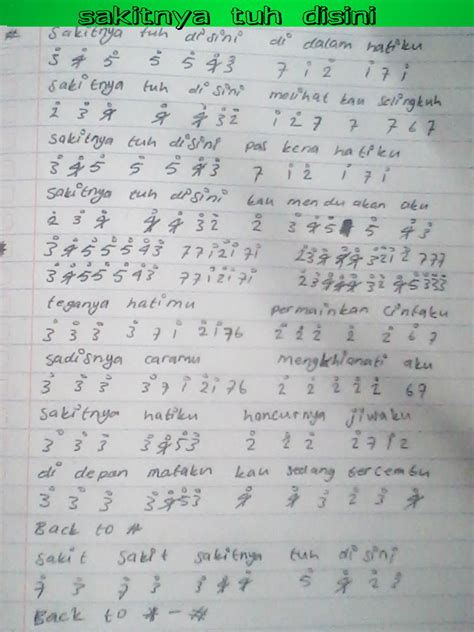 sakitnya tuh disini
# sakitnya tuh disini di dalam hatiku
3̇ 4̇ 5̇ 5̇ 5̇ 4̇ 3̇ 7 1̇ 2̇ 1̇ 7 1̇
sakitnya tuh disini melihat kau selingkuh
2̇ 3̇ 4̇ 4̇ 4̇ 3̇ 2̇ 1̇ 2̇ 7 7 7 6 7
sakitnya tuh disini pas kena hatiku
3̇ 4̇ 5̇ 5̇ 5̇ 4̇ 3̇ 7 1̇ 2̇ 1̇ 7 1̇
sakitnya tuh disini kau menduakan aku
2̇ 3̇ 4̇ 4̇ 4̇ 3̇ 2̇ 2̇ 3̇ 4̇ 5̇ 5̇ 4̇ 3̇
* 3̇4̇5̇5̇5̇4̇3̇ 771̇2̇1̇71̇ 2̇3̇4̇4̇4̇3̇2̇1̇2̇777
3̇4̇5̇5̇5̇4̇3̇ 771̇2̇1̇71̇ 2̇3̇4̇4̇4̇3̇2̇4̇5̇3̇3̇3̇
teganya hatimu permainkan cintaku
3̇ 3̇ 3̇ 3̇ 7 1̇ 2̇1̇76 2̇ 2̇ 2̇ 2̇ 2̇ 6 7
sadisnya caramu mengkhianati aku
3̇ 3̇ 3̇ 3̇ 7 1̇ 2̇1̇76 2̇ 2̇ 2̇ 2̇ 2̇ 67
sakitnya hatiku hancurnya jiwaku
3̇ 3̇ 3̇ 3̇4̇5̇3̇ 2̇ 2̇ 2̇ 2̇71̇2̇
di depan mataku kau sedang bercembu
3̇ 3̇ 3̇ 3̇4̇5̇3̇ 4̇ 4̇ 3̇ 2̇ 3̇ 4̇
Back to #
sakit sakit sakitnya tuh disini
7̇ 3̇ 7̇ 3̇ 3̇ 4̇ 4̇ 5̇ 4̇ 2̇ 3̇
Back to * - #